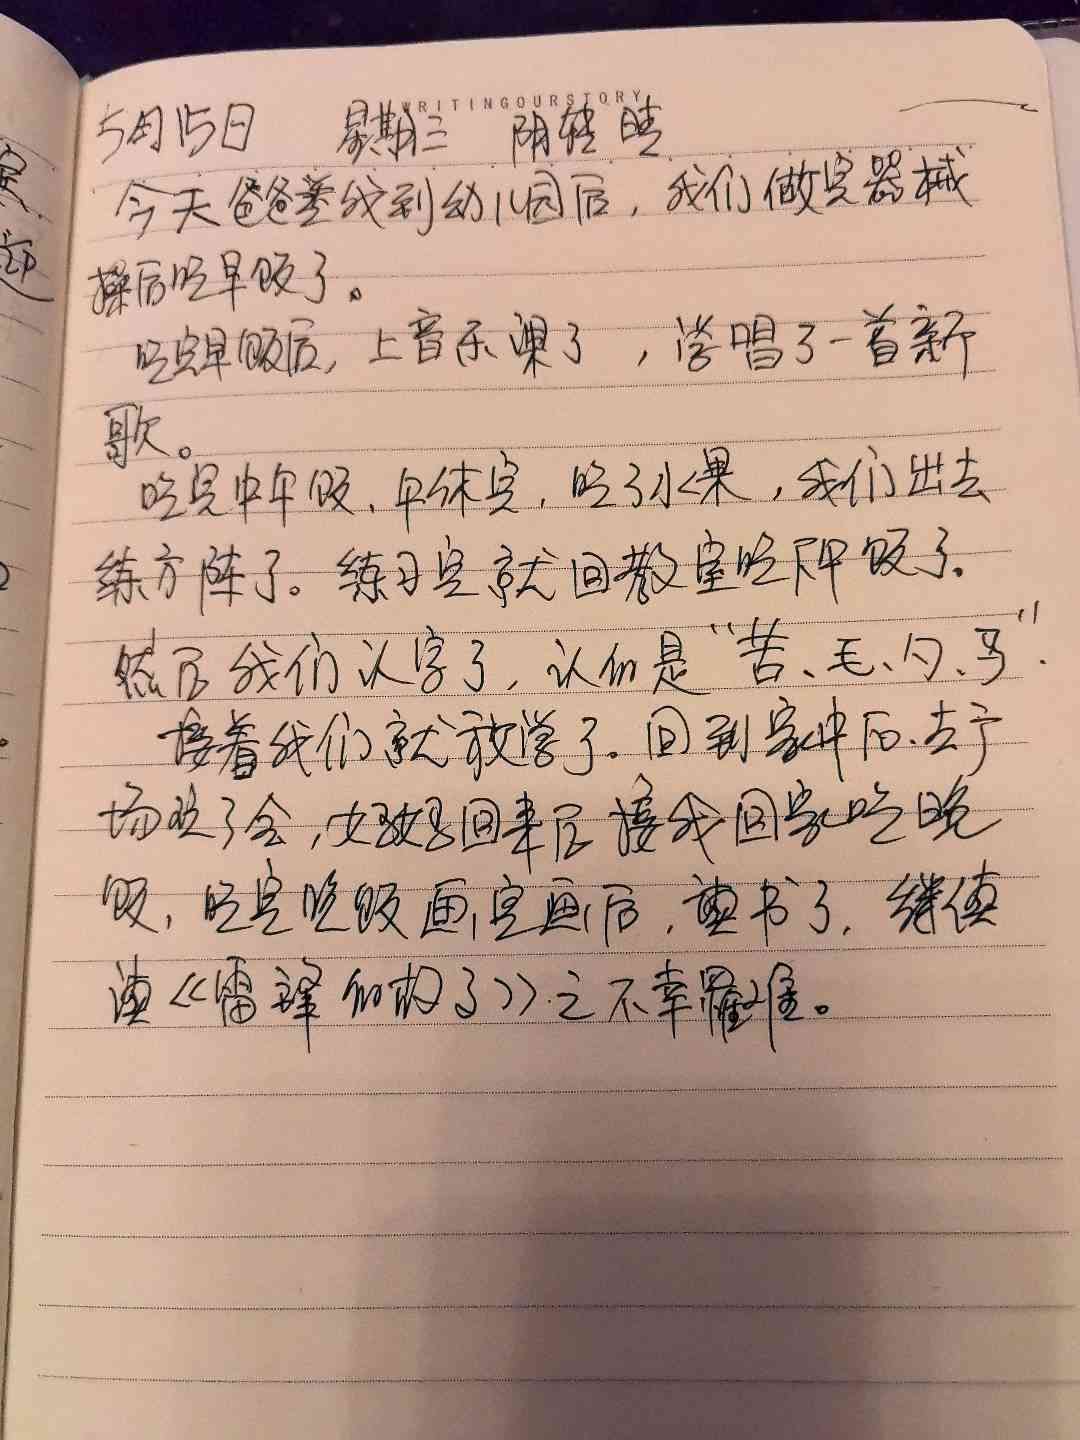 WRITINGOURSTORY
5月15日 星期三 阴转晴
今天爸爸送我到幼儿园后，我们做完器械
操后吃早饭了。
吃完早饭后，上音乐课了，学唱了一首新
歌。
吃完中午饭、午休完，吃了水果，我们出去
练方阵了。练习完就回教室吃下午饭了.
然后我们认字了，认的是“苦、毛、勺、马”.
接着我们就放学了。回到家中后、去广
场玩了会，妈妈回来后接我回家吃晚
饭，吃完晚饭画完画后，读书了，继续
读《雷锋的故了》之不幸罹难。